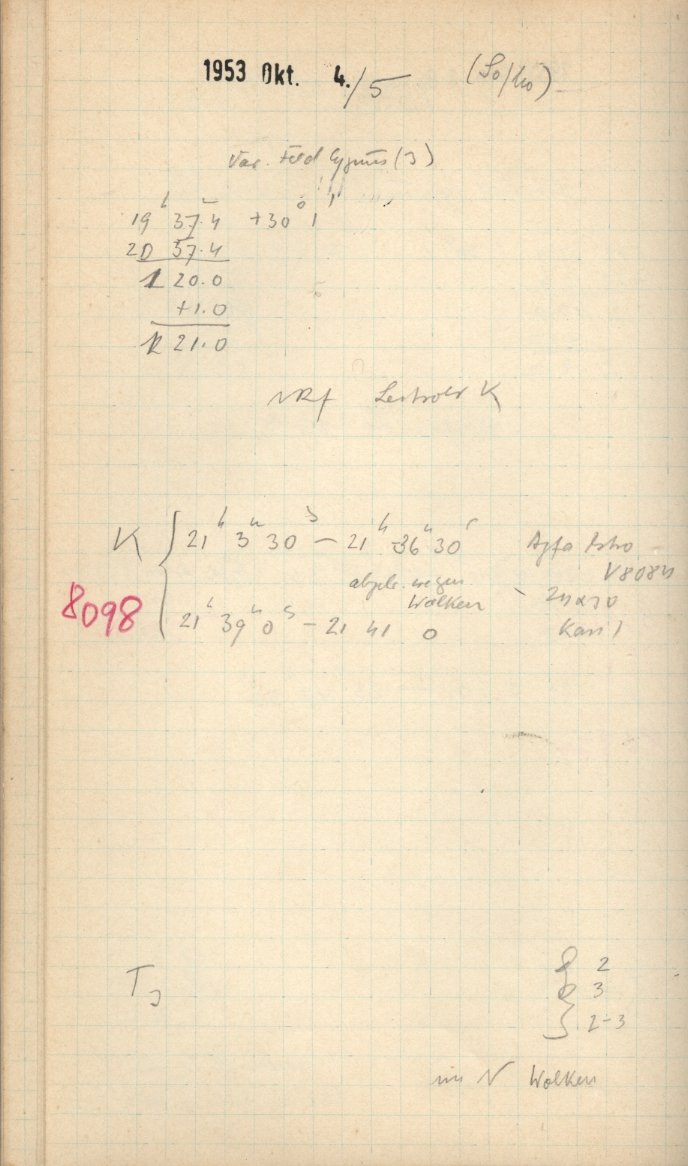 1953 Okt. 4./5 (So/Mo)
Var. Feld Cygnus (3)
19h 37.4 +30° 1'
20 57.4
1 20.0
+1.0
1 21.0
K { 21h 3m 30s – 21h 36m 30s Agfa Astro
V8084
abgebr. wegen
Wolken 24x30
8098
21h 39m 0s – 21 41 0 Kass 1
T3
2
3
2-3
im N Wolken